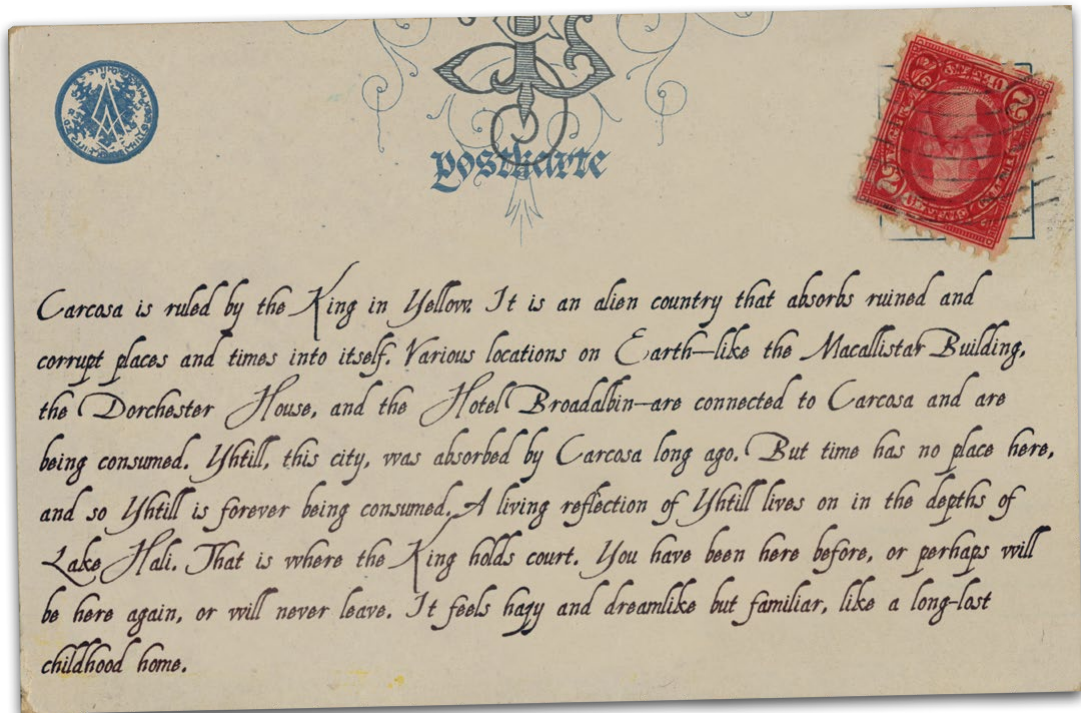 postkarte
Carcosa is ruled by the King in Yellow. It is an alien country that absorbs ruined and
corrupt places and times into itself. Various locations on Earth—like the Macallistar Building,
the Dorchester House, and the Hotel Broadalbin—are connected to Carcosa and are
being consumed. Yhtill, this city, was absorbed by Carcosa long ago. But time has no place here,
and so Yhtill is forever being consumed. A living reflection of Yhtill lives on in the depths of
Lake Hali. That is where the King holds court. You have been here before, or perhaps will
be here again, or will never leave. It feels hazy and dreamlike but familiar, like a long-lost
childhood home.